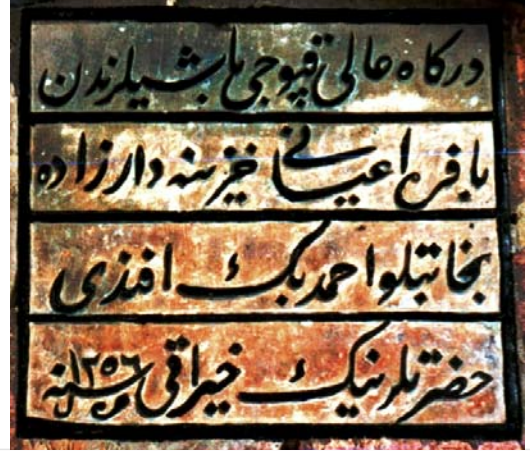 درکاه عالی قپوجی باشیلرندن
بافره اعیانی خزینه دار زاده
نجابتلو احمد بک افندی
حضرتلرنیک خیراتی سنه ١٢٥٦